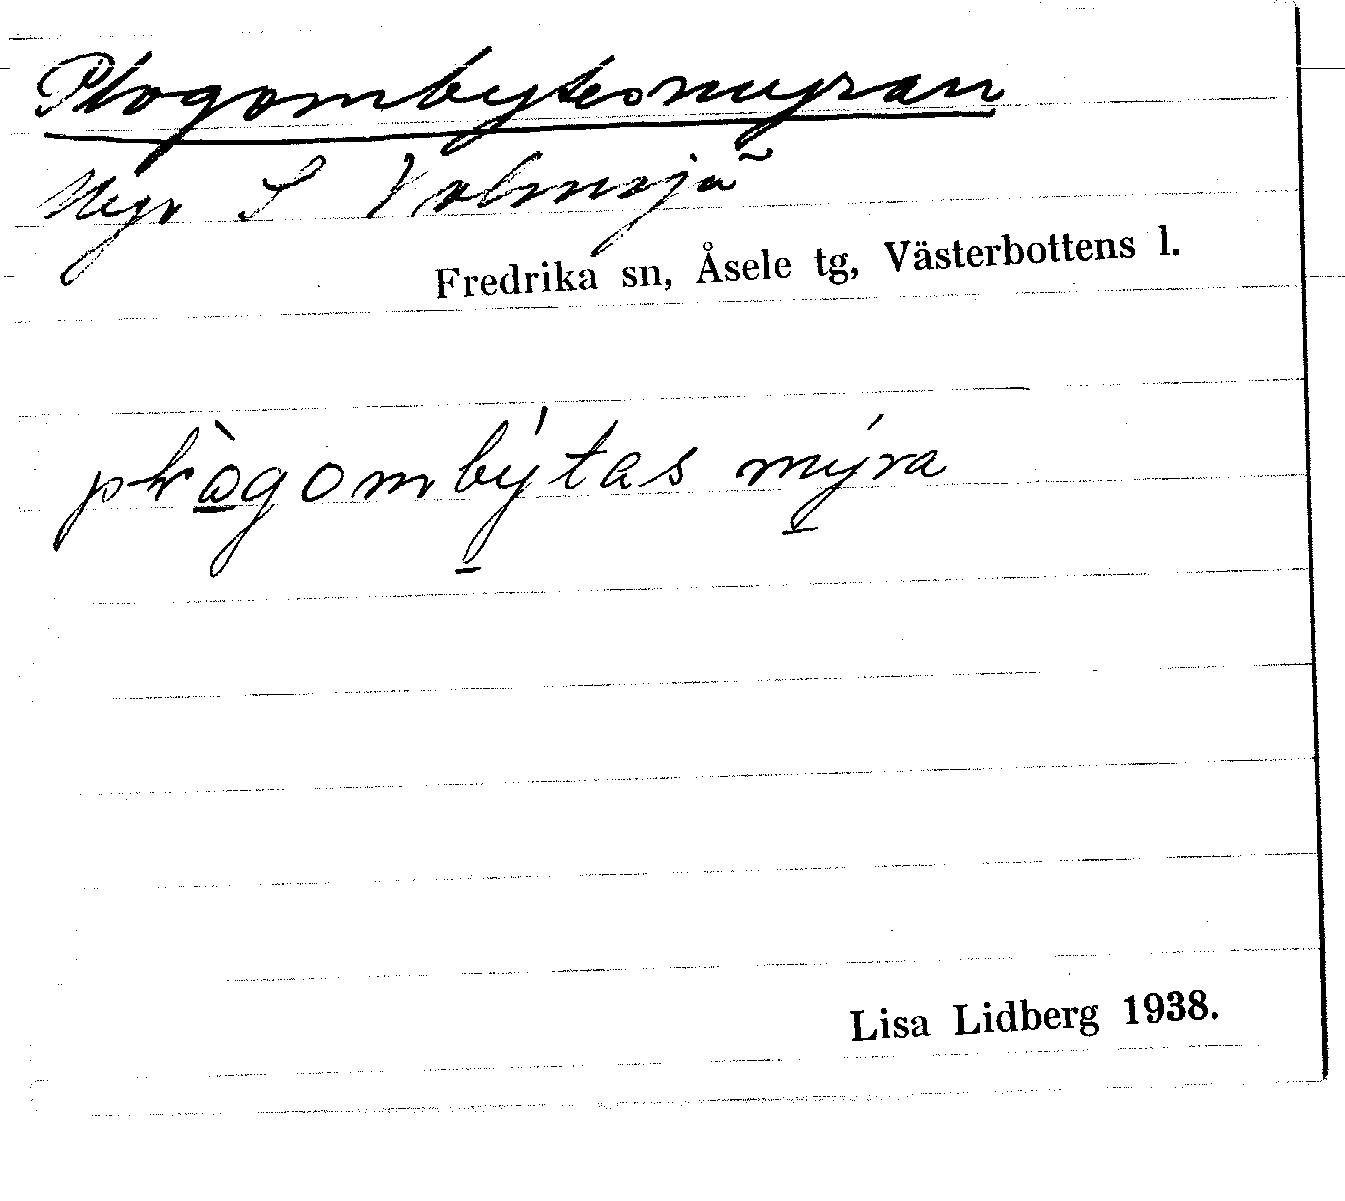 Plogombytesmyran
Myr S Volmsjö
Fredrika sn, Åsele tg, Västerbottens l.
plògombýtas mýra
Lisa Lidberg 1938.